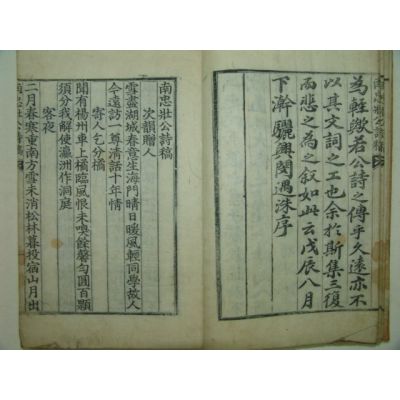 為輕歟若公詩之傳乎久遠亦不
以其文詞之工也余於斯集三復
而悲之為之叙如此云戊辰八月
下澣驪興閔遇洙序
南忠壯公詩稿
次韻贈人
雪盡湖城春意生海門晴日暖風輕同學故人
今遠訪一尊清話十年情
寄人乞分橘
聞有楊州車上橘臨風恨未嗅餘馨匀圓百顆
須分我解使瀛洲作洞庭
客夜
二月春寒重南方雪未消松林暮投宿山月出
南忠壯公詩稿